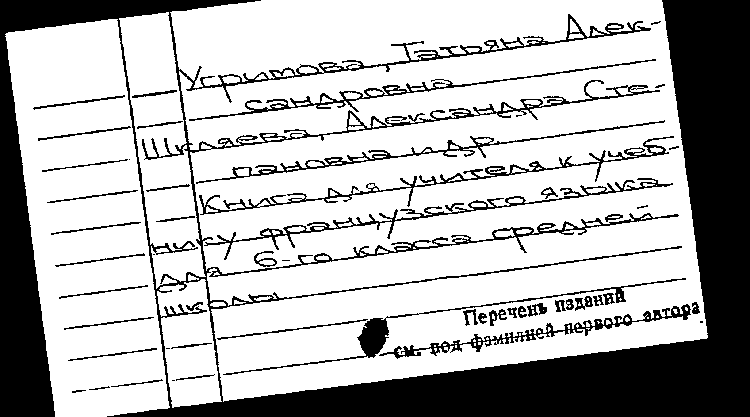 Угримова, Татьяна Алек-
сандровна
Шкляева, Александра Сте-
пановна и др.
Книга для учителя к учеб-
нику французского языка
для 6-го класса средней
школы
Перечень изданий
см. под фамилией первого автора